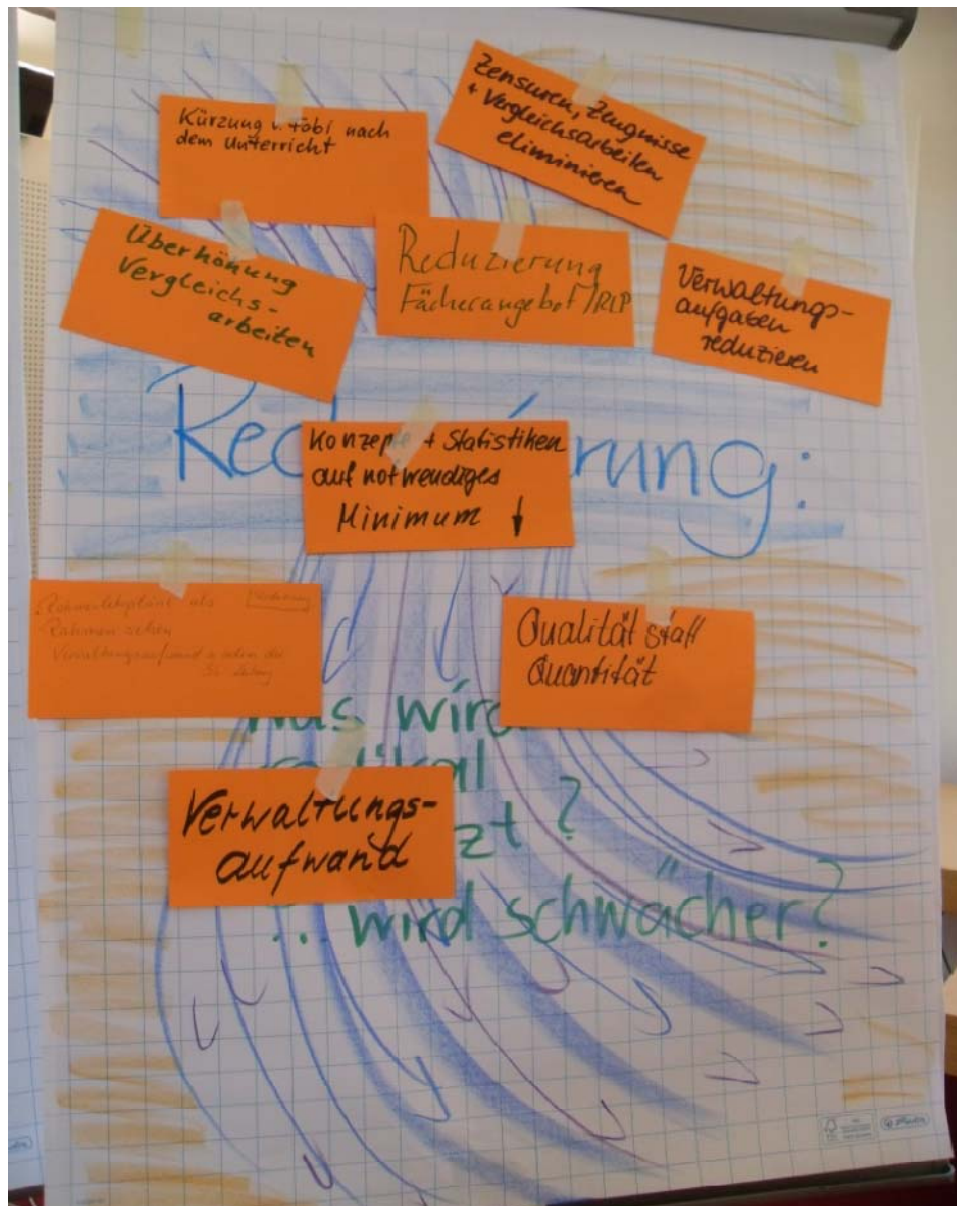 Kürzung v. Fobi nach
dem Unterricht
Zensuren, Zeugnisse
+ Vergleichsarbeiten
eliminieren
Überhönung
Vergleichs-
arbeiten
Reduzierung
Fächerangebot/RLP
Verwaltungs-
aufgaben
reduzieren
Konzepte + Statistiken
auf notwendiges
Minimum ↓
rung:
Rahmenlehrpläne als
Rahmen sehen
Qualität statt
Quantität
Was wird
Verwaltungs-
aufwand
zt?
... wird schwächer?